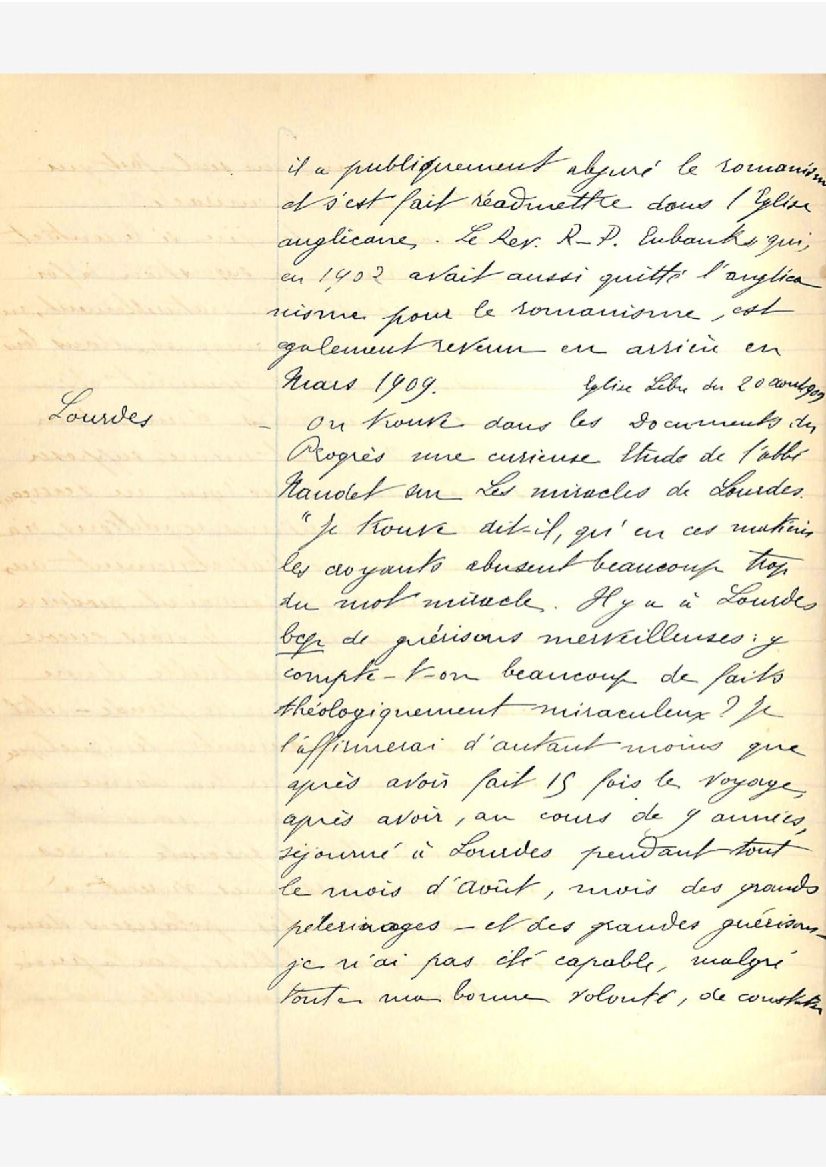 il a publiquement abjuré le romanism
et s'est fait réadmettre dans l'Eglise
anglicane. Le Rev. R-P. Eubanks qui,
en 1902 avait aussi quitté l'anglica
nisme pour le romanisme, est
galement revenu en arrière en
Mars 1909. Eglise Libre du 20 aout 1909
Lourdes
– On trouve dans les Documents du
Progrès une curieuse Etude de l'abbé
Naudet sur Les miracles de Lourdes.
"Je trouve dit-il, qu'en ces matières
les croyants abusent beaucoup trop
du mot miracle. Il y a à Lourdes
bcp de guérisons merveilleuses : y
compte-t-on beaucoup de faits
théologiquement miraculeux? Je
l'affirmerai d'autant moins que
après avoir fait 15 fois le voyage,
après avoir, au cours de 9 années,
séjourné à Lourdes pendant tout
le mois d'Août, mois des grands
pelerinages – et des grandes guérisons –
je n'ai pas été capable, malgré
toute ma bonne volonté, de constater